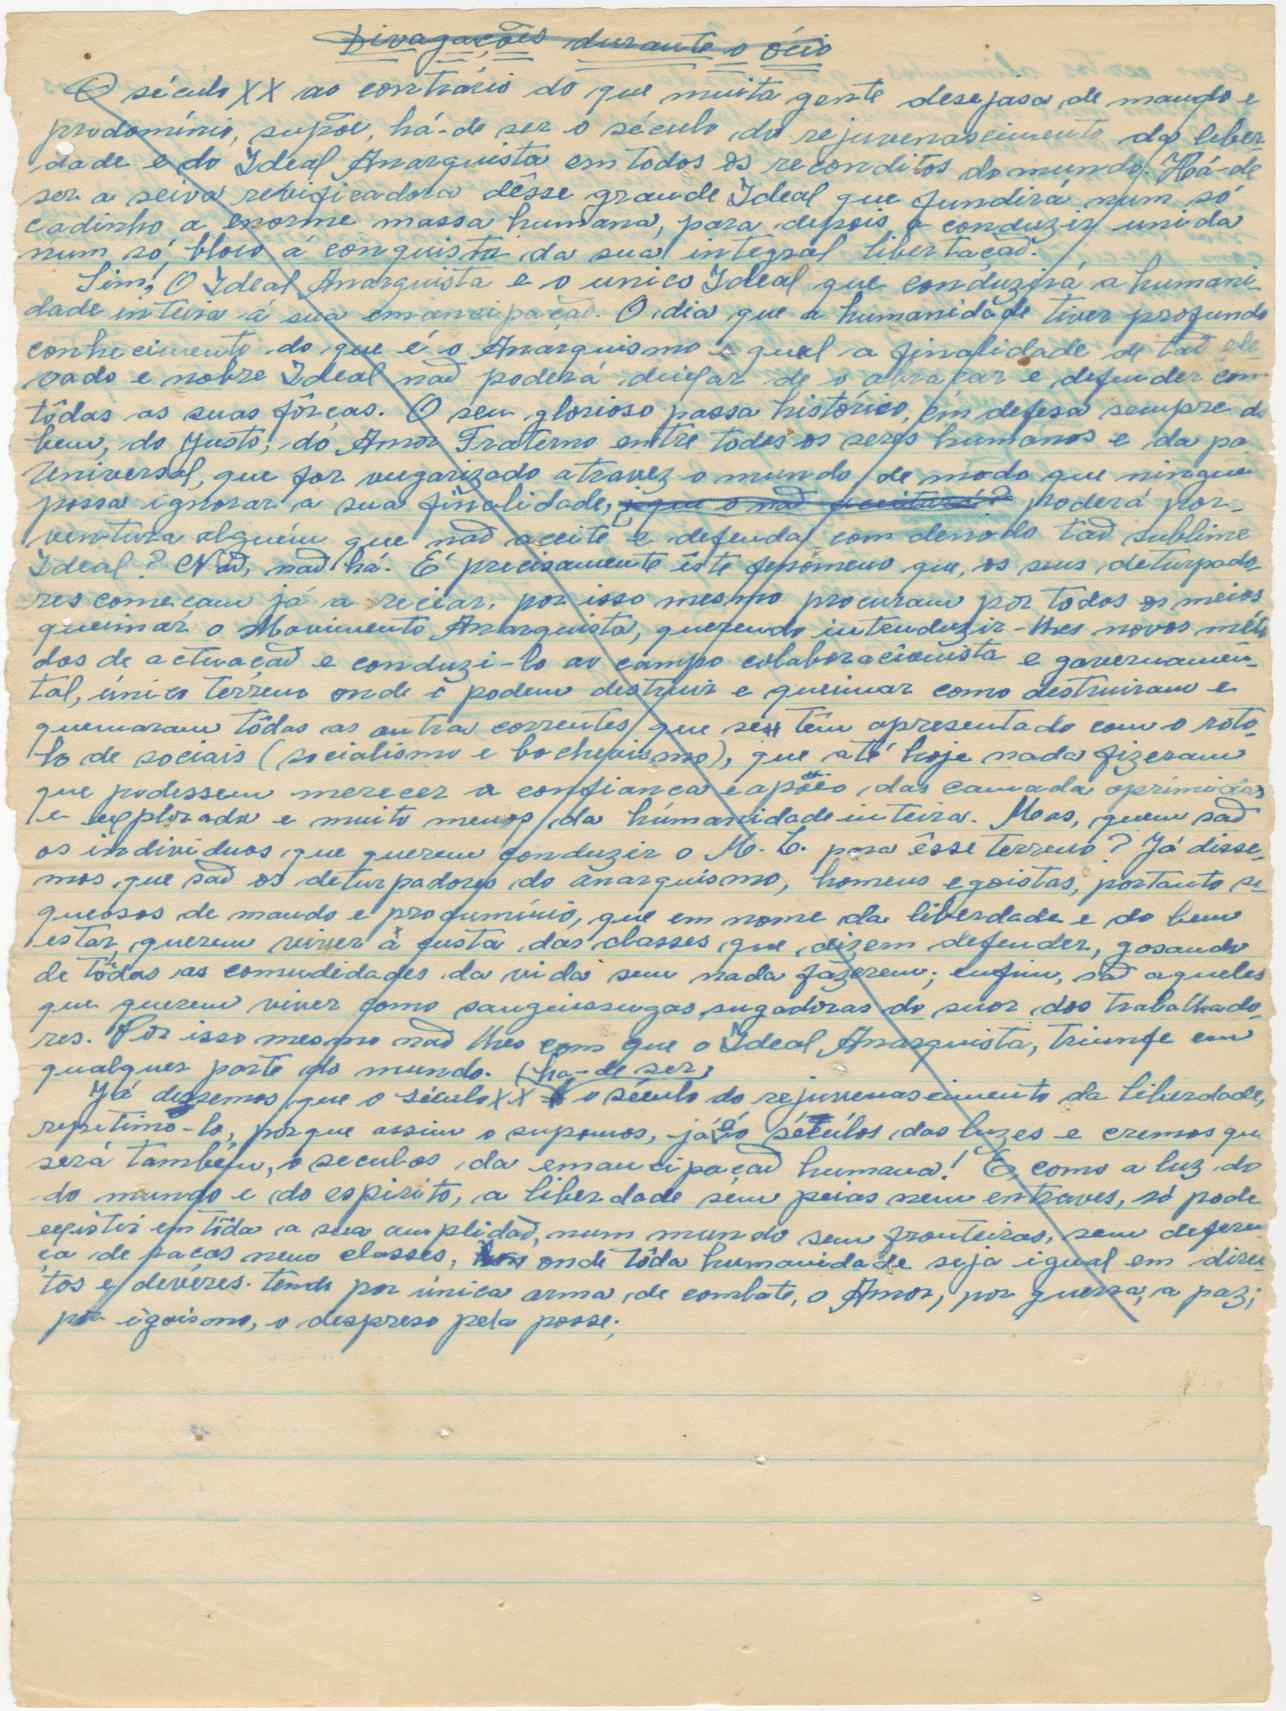 Divagações durante o ócio
O século XX ao contrário do que muita gente desejosa de mando e
predomínio, supõe, há-de ser o século do rejuvenascimento da liber-
dade e do Ideal Anarquista em todos os reconditos do mundo. Há-de
ser a seiva revificadora dêsse grande Ideal que fundirá num só
cadinho a enorme massa humana, para depois a conduzir unida
num só bloco á conquista da sua integral libertação.
Sim! O Ideal Anarquista e o unico Ideal que conduzirá a humani-
dade inteira á sua emancipação. O dia que a humanidade tiver profundo
conhecimento do que é o Anarquismo e qual a finalidade de tão ele
vado e nobre Ideal não poderá deixar de o abraçar e defender com
tôdas as suas fôrças. O seu glorioso passa histórico, em defesa sempre do
bem, do justo, do Amor Fraterno entre todos os seres humanos e da pa
Universal, que for vugarizado atravez o mundo de modo que ningue
possa ignorar a sua finalidade, poderá por-
ventura alguém que não aceite e defenda com denodo tão sublime
Ideal? Não, não há. É precisamente êste fenómeno que, os seus deturpado-
res começam já a reciar, por isso mesmo procuram por todos os meios
queimar o Movimento Anarquista, querendo intenduzir-lhes novos méto
dos de actuação e conduzi-lo ao campo colaboracionista e governamen-
tal, único terreno onde o podem distruir e queimar como destruiram e
quemaram tôdas as outra correntes que se têm apresentado com o roto-
lo de sociais (socialismo e bochevismo), que até hoje nada fizeram
que podessem merecer a confiança e apôio das camada oprimidas
e explorada e muito menos da humanidade inteira. Mas, quem são
os individuos que querem conduzir o M. L. para êsse terreno? Já disse-
mos que são os deturpadores do anarquismo, homens egoistas, portanto se-
queosos de mando e produmínio, que em nome da liberdade e do bem
estar, querem viver á custa das classes que dizem defender, gosando
de tôdas as comudidades da vida sem nada fazerem; enfim, são aqueles
que querem viver como sanguessugas sugadoras do suor dos trabalhado-
res. Por isso mesmo não lhes com que o Ideal Anarquista, triunfe em
qualquer parte do mundo. (há-de ser)
Já dissemos que o século XX o século do rejuvenascimento da liberdade,
repitimo-lo, porque assim o supomos, já o século das luzes e cremos que
será também, o seculos da emancipação humana! E, como a luz do
do mundo e do espirito, a liberdade sem peias nem entraves, só pode
existir em tôda a sua amplidão, num mundo sem fronteiras, sem deferen
ça de raças nem classes, onde tôda humanidade seja igual em direi
tos e devêres. tendo por única arma de combate, o Amor, por guerra, a paz;
por igoismo, o despreso pela posse;